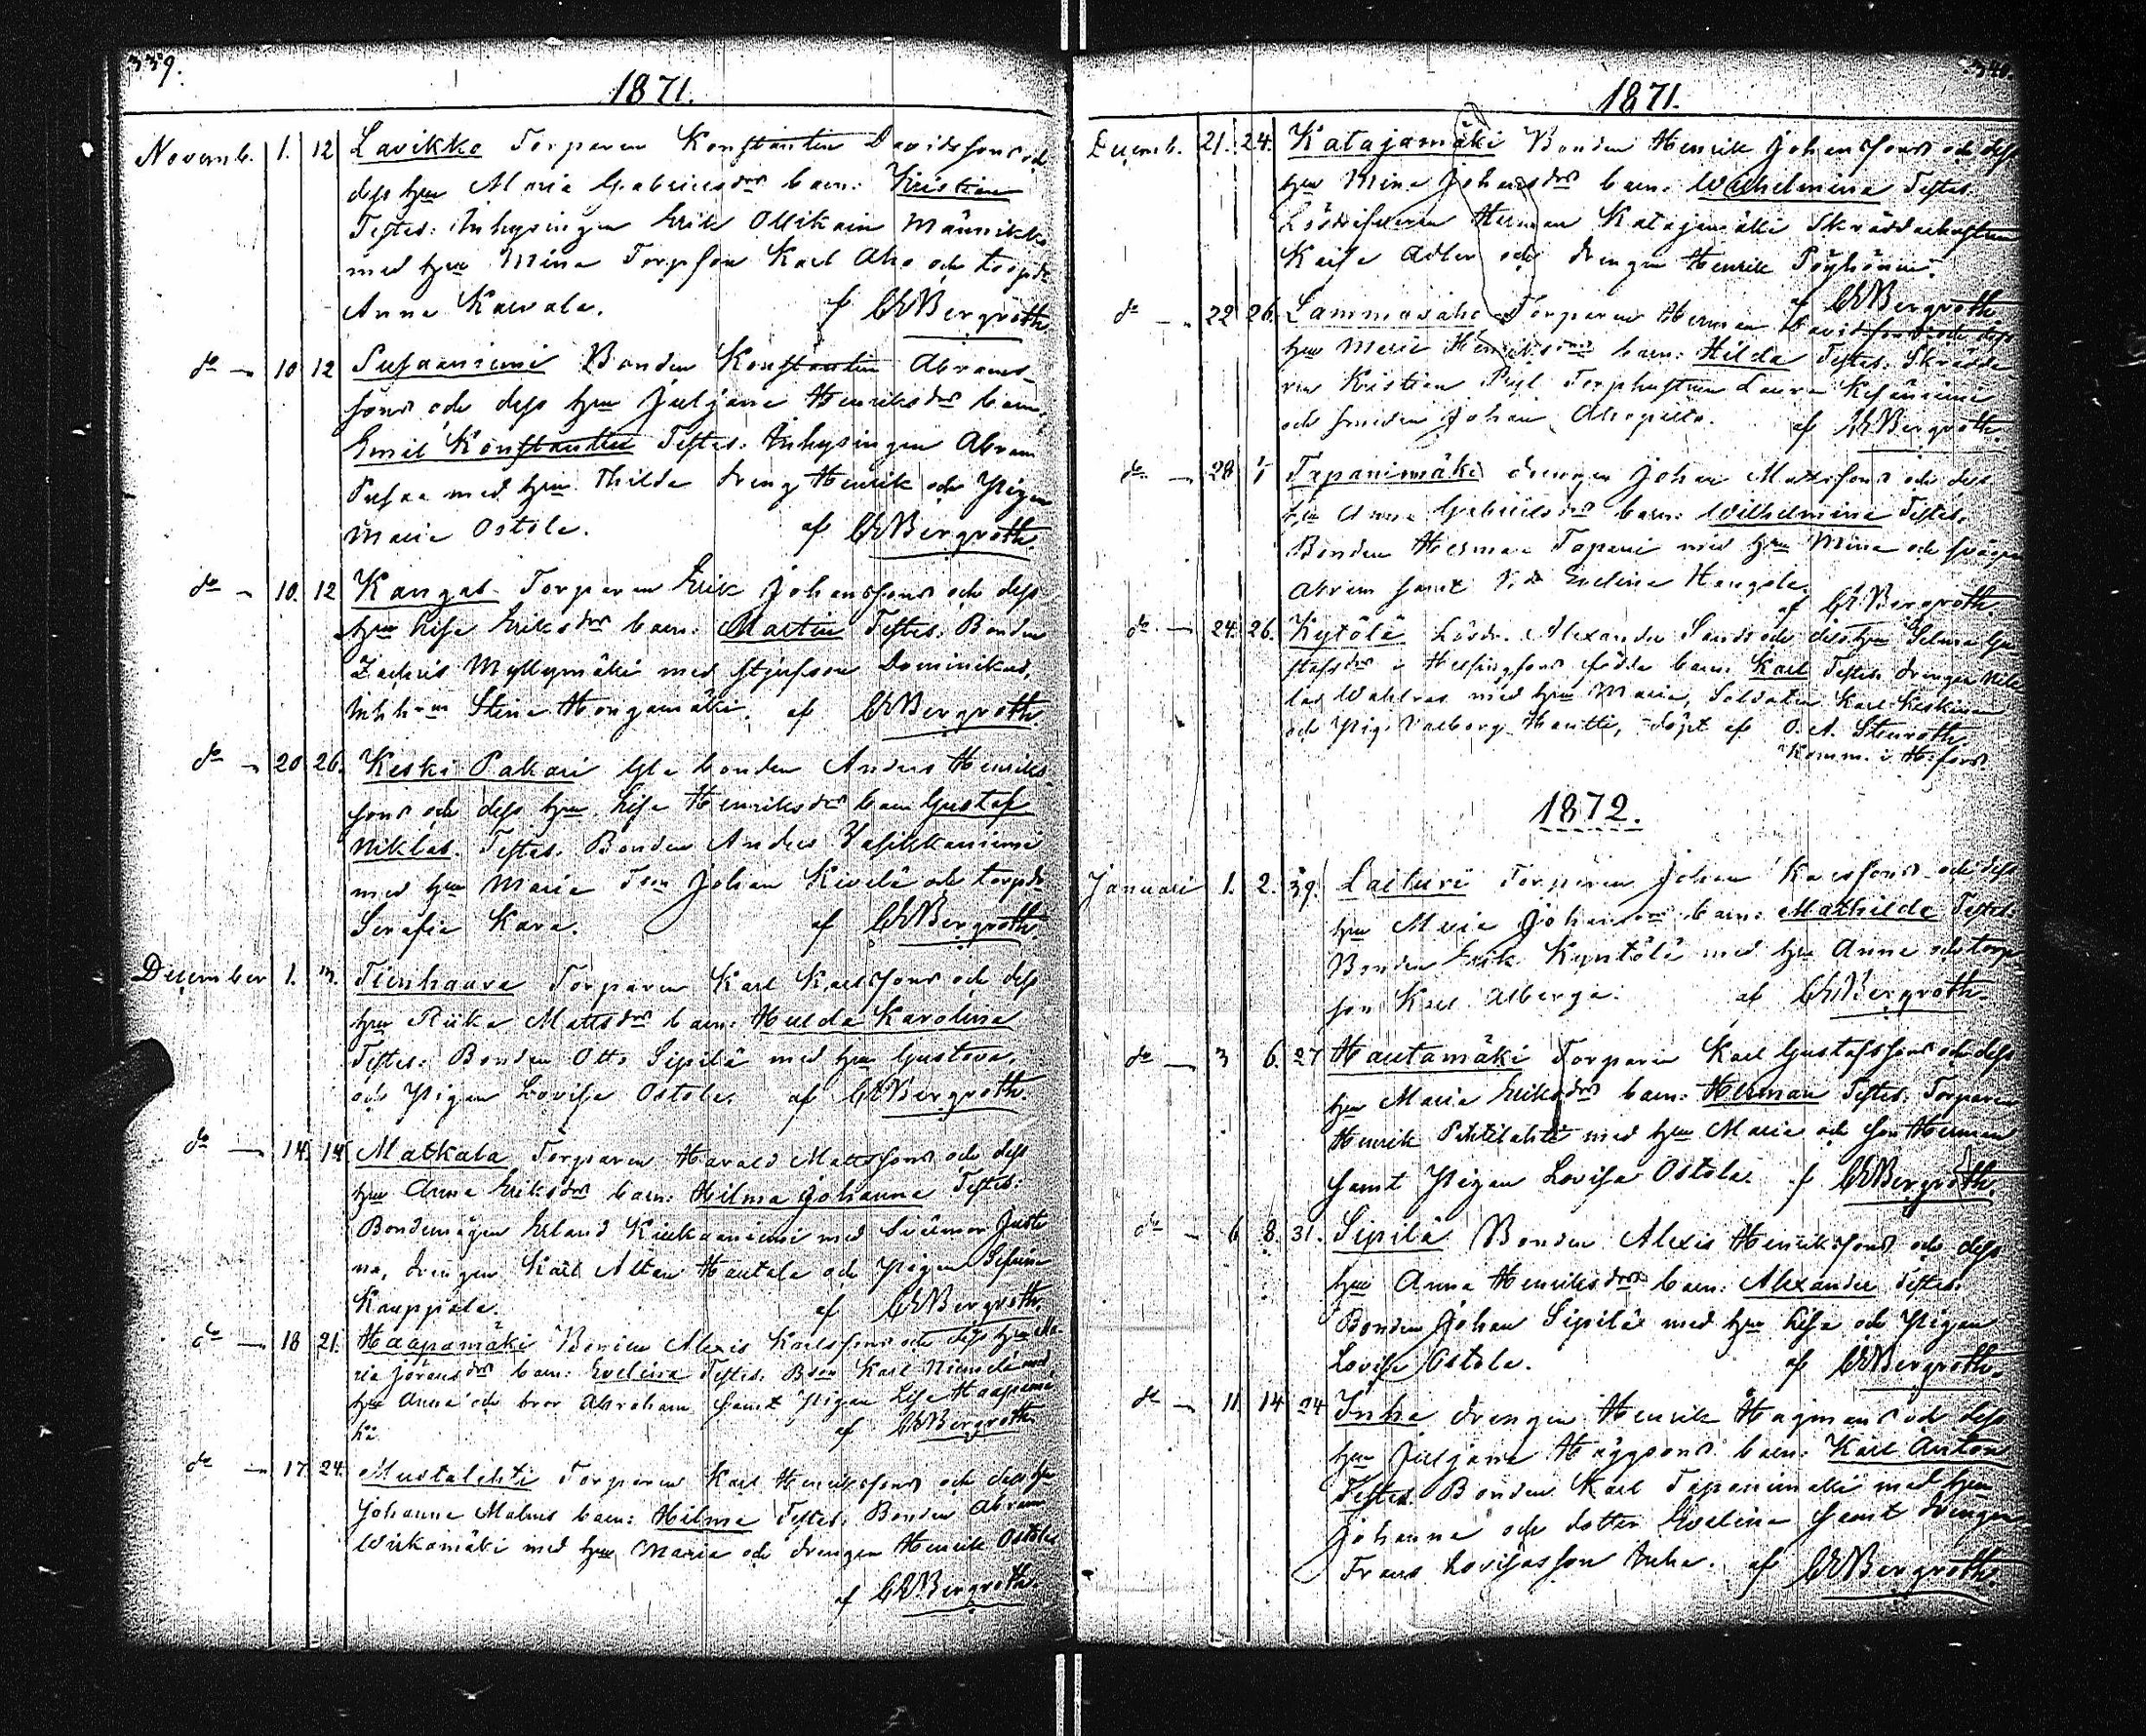 339.
1871.
Novemb. 1. 12 Lavikko Torparen Konstantin Davidssons och
dess hu Maria Gabrielsdrs barn: Kristian
Testes: Inhysingen Erik Ollikain Männikkö
med hu Mina Torpson Karl Aho och torpdr
Anna Karvala. af CEBergroth
do 10 12 Pusaaniemi Bonden Konstantin Abrams-
sons och dess hu Juljana Henriksdrs barn:
Emil Konstantin Testes: Inhysingen Abram
Pusaa med hu Thilda dreng Henrik och Pigan
Maria Ostola. af CEBergroth.
do 10. 12 Kangas Torparen Erik Johanssons och dess
hu Lisa Eriksdrs barn: Martin Testes: Bonden
Zachris Myllymäki med styfson Dominikus,
Stina Hongamäki. af CEBergroth
do 20 26. Keski Pakari bonden Anders Henriks-
sons och dess hu Lisa Henriksdrs barn Gustaf
Niklas. Testes. Bonden Anders Vasikkaniemi
med hu Maria Johan Kivelä och torpdr
Serafia Kara. af CEBergroth.
December 1. 3. Tienhaara Torparen Karl Karlssons och dess
hu Riika Mattsdrs barn: Hulda Karolina
Testes: Bonden Otto Sipilä med hu Gustava,
och Pigan Lovisa Ostola. af CEBergroth.
do 14. 14 Matkala Torparen Harald Mattssons och dess
hu Anna Eriksdrs barn: Hilma Johanna Testes:
Bondemågen Erland Kiukaaniemi med Svärmor Justi
na, drengen Karl Hautala och Pigan
Kauppila. af CEBergroth.
do 18 21. Haapamäki Bonden Alexis Karlssons och dess hu Ma-
ria Jöransdrs barn: Evelina Testes. Bson Karl Niemelä med
hu Anna och bror Abraham samt Pigan Lisa Haapamä
ki. af CEBergroth
do 17. 24. Mustalahti Torparen Karl Henrikssons och dess hu
Johanna Malms barn: Hilma Testes: Bonden Abram
Wirkamäki med hu Maria och drengen Henrik Ostola
af CEBergroth.
340.
1871.
Decemb. 21. 24. Katajamäki Bonden Henrik Johanssons och dess
hu Mina Johansdrs barn: Wilhelmina Testes.
Herman Katajamäki Skräddarhustrun
Kaisa Adler och drengen Henrik Pöyhönen.
af CEBergroth
do 22 26. Lammasaho Torparen Herman Davidssons och dess
hu Maria Henriksdrs barn: Hilda Testes: Skrädda
ren Kristian Torphustrun Laura Kesäniemi
och smeden Johan Ahopelto. af CEBergroth.
do 28 Tapanimäki drengen Johan Mattssons och dess
hu Anna Gabrielsdrs barn: Wilhelmina Testes.
Bonden Herman Tapani med hu Mina och svåger
Abram samt Evelina Hangola.
af CEBergroth
do 24. 26. Kytölä Alexander Sands och dess hu Selma Gu
stafsdrs i Helsingfors födda barn: Karl Testes. drengen Nik
las Wahlroos med hu Maria, Soldaten Karl Keskinen
och Pig. Valborg döpt af O. A. Stenroth.
Komm. i H:fors
1872.
Januari 1. 2. 39. Laituri Torparen Johan Karlssons och dess
hu Maria Johansdrs barn: Mathilda Testes:
Bonden Erik Kyntölä med hu Anna och torp
son Karl Alberga. af CEBergroth.
do 3 6. 27 Hautamäki Torparen Karl Gustafssons och dess
hu Maria Eriksdrs barn: Herman Testes. Torparen
Henrik Pihtilahti med hu Maria och son Herman
samt Pigan Lovisa Ostola. af CEBergroth.
do 6 8. 31. Sipilä Bonden Alexis Henrikssons och dess
hu Anna Henriksdrs barn: Alexander Testes.
Bonden Johan Sipilä med hu Lisa och Pigan
Lovisa Ostola. af CEBergroth.
do 11. 14 24 Inha drengen Henrik Hagmans och dess
hu Juljana Häggsons barn: Karl Anton
Testes. Bonden Karl Tapanimäki med hu
Johanna och dotter Evelina samt drengen
Frans Lovisasson Inha. af CEBergroth.